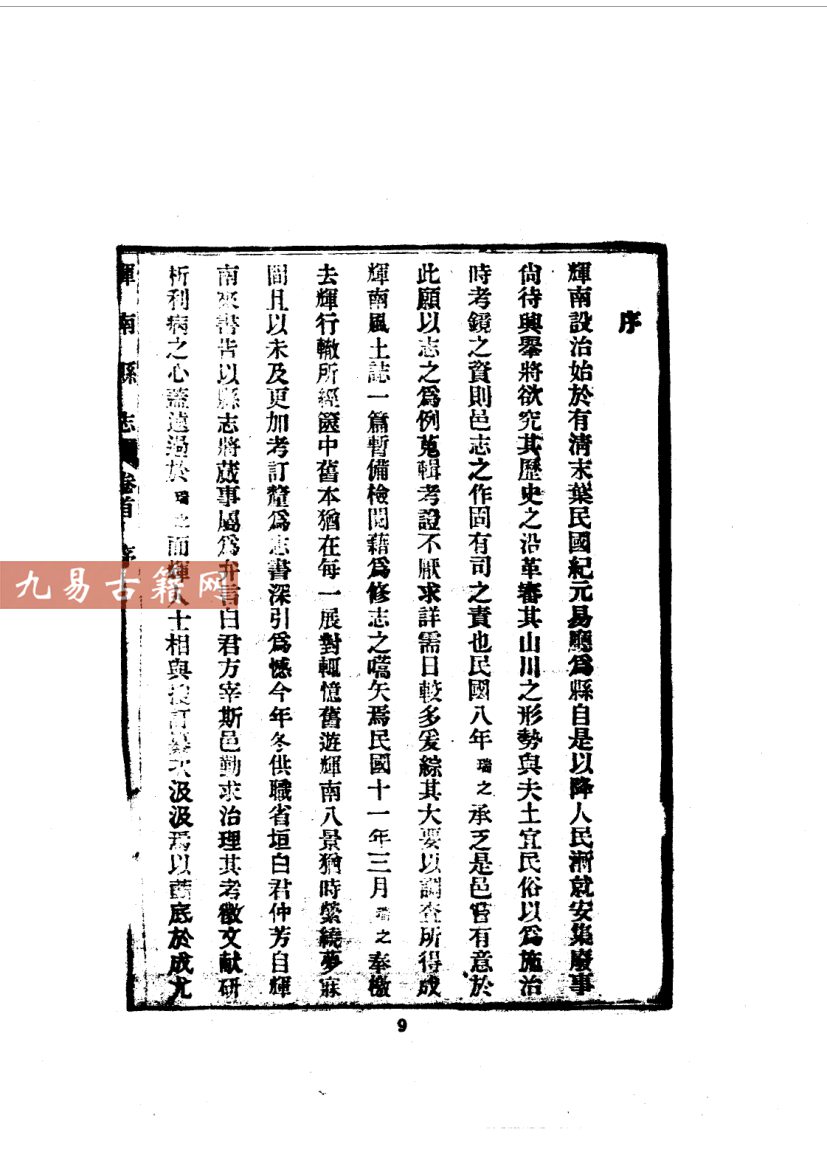 序
輝南設治始於有清末葉民國紀元易廳爲縣自是以降人民漸就安集廢事
尙待興舉將欲究其歷史之沿革審其山川之形勢與夫土宜民俗以爲施治
時考鏡之資則邑志之作固有司之責也民國八年瑞之承乏是邑嘗有意於
此願以志之爲例蒐輯考證不厭求詳需日較多爰綜其大要以調查所得成
輝南風土誌一篇暫備檢閱藉爲修志之嚆矢焉民國十一年三月瑞之奉檄
去輝行轍所經篋中舊本猶在每一展對輒憶舊遊輝南八景猶時縈繞夢寐
間且以未及更加考訂釐爲志書深引爲憾今年冬供職省垣白君仲芳自輝
南來書告以縣志將蕆事屬爲弁言白君方宰斯邑勤求治理其考徵文献研
析利病之心蓋遠過於瑞之而輝人士相與訂纂次汲汲焉以底於成尤
輝南縣志 卷首 序
九易古籍网
9